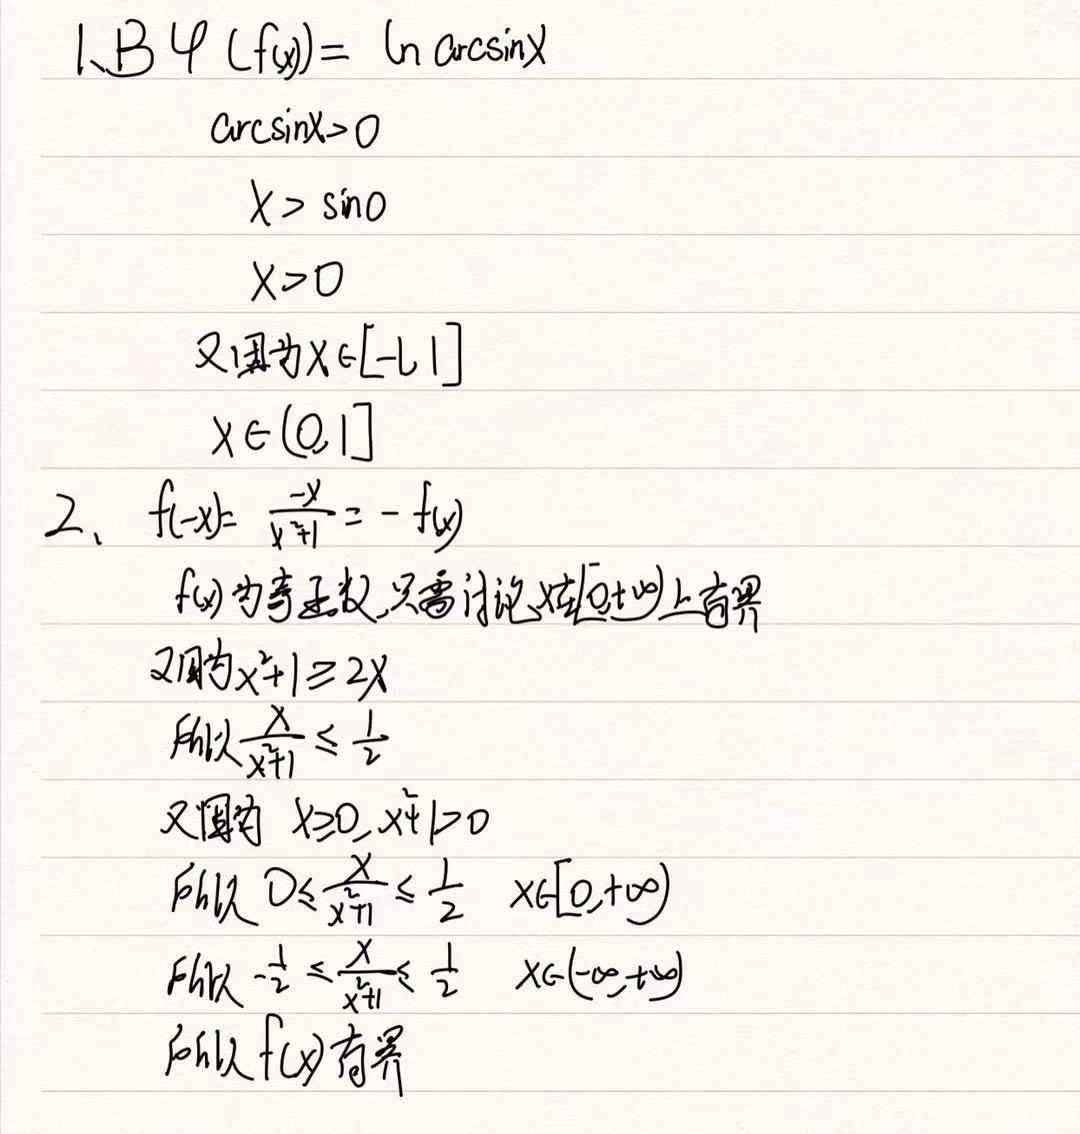 1、B φ(f(x))= ln arcsinx
arcsinx>0
x> sin0
x>0
又因为x∈[-1,1]
x∈(0,1]
2、 f(-x)= \frac{-x}{x²+1} = -f(x)
f(x)为奇函数,只需讨论x在[0,+∞)上有界
又因为x²+1≥2x
所以\frac{x}{x²+1} ≤ \frac{1}{2}
又因为 x≥0, x²+1>0
所以 0≤\frac{x}{x²+1}≤\frac{1}{2} x∈[0,+∞)
所以 -\frac{1}{2}≤\frac{x}{x²+1}≤\frac{1}{2} x∈(-∞,+∞)
所以f(x)有界